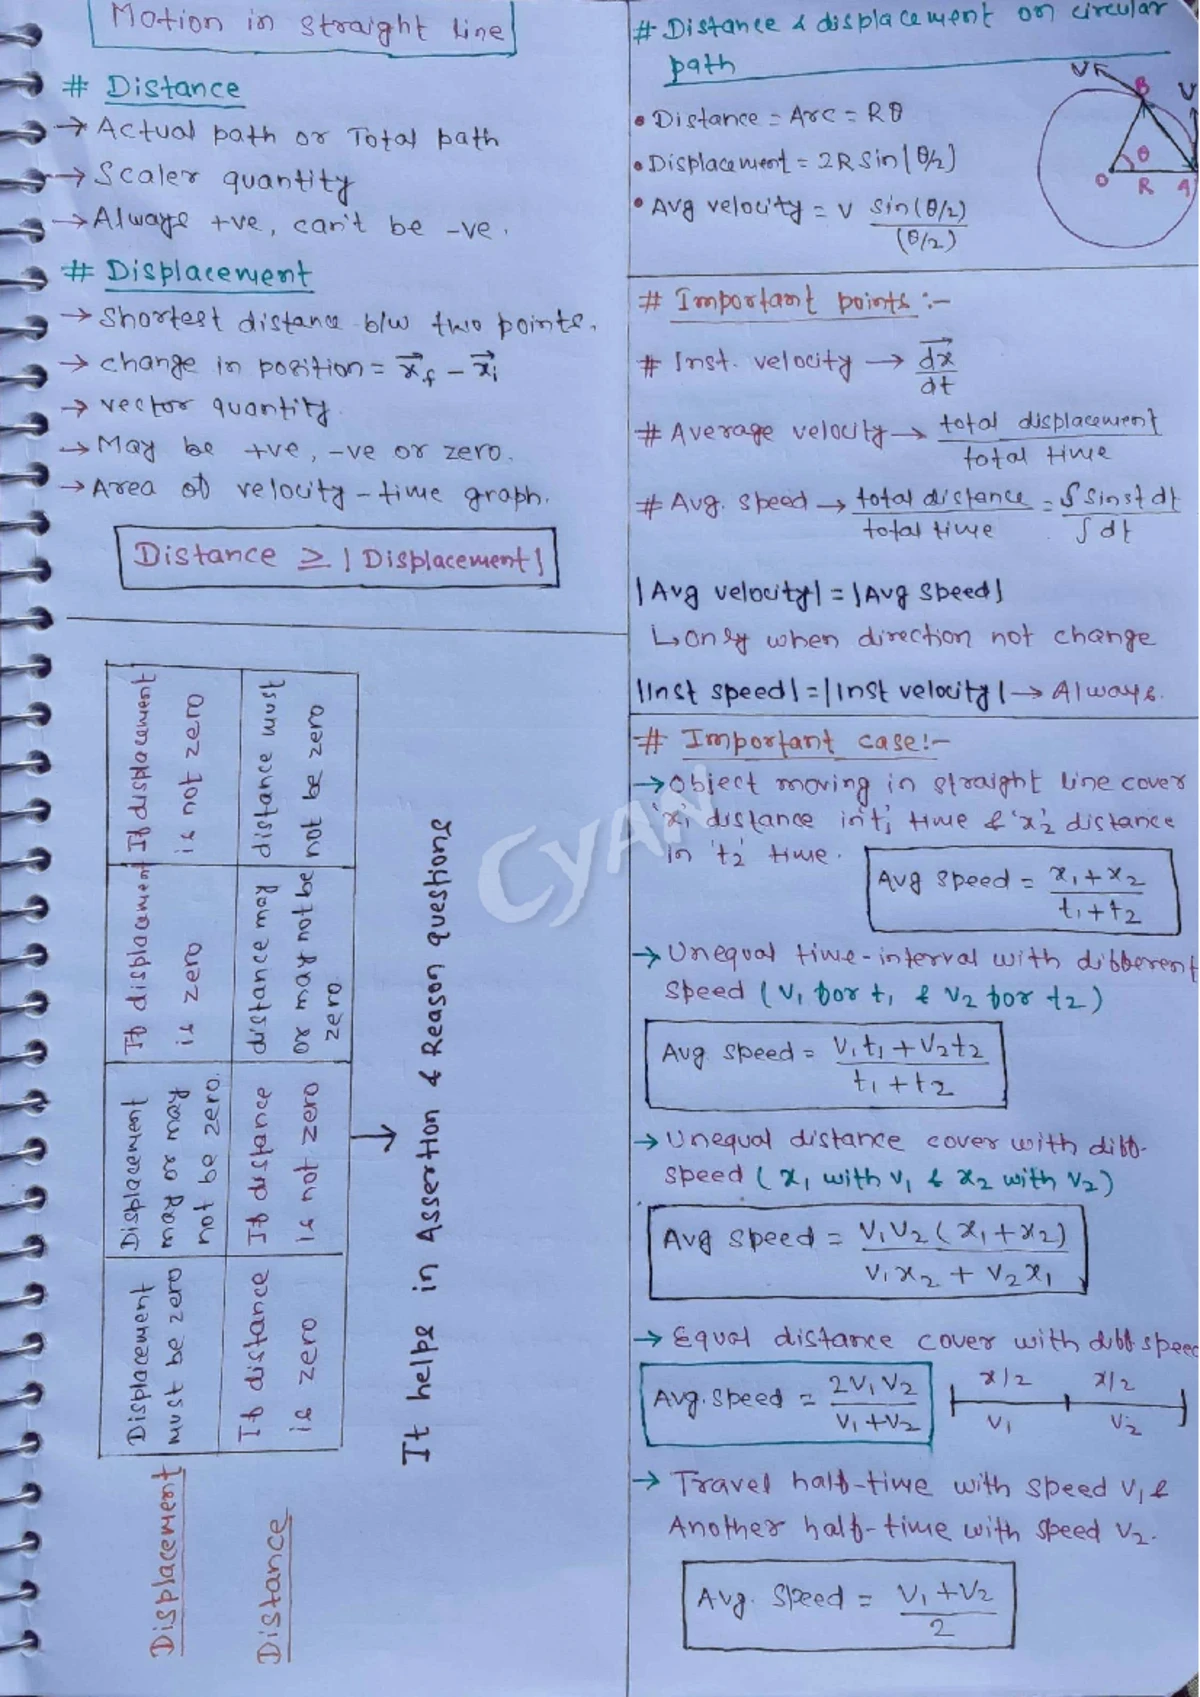 Motion in straight line
# Distance
→ Actual path or Total path
→ Scaler quantity
→ Always +ve, can't be -ve.
# Displacement
→ Shortest distance b/w two points.
→ change in position = x⃗f - x⃗i
→ vector quantity.
→ May be +ve, -ve or zero.
→ Area of velocity-time graph.
Distance ≥ | Displacement |
Displacement
Displacement must be zero
Displacement may or may not be zero.
If displacement is zero
If displacement is not zero
Distance
If distance is zero
If distance is not zero
distance may or may not be zero.
distance must not be zero
→ It helps in Assertion & Reason questions
CYAN
# Distance & displacement on circular
path
• Distance = Arc = Rθ
• Displacement = 2R Sin(θ/2)
• Avg velocity = V Sin(θ/2) / (θ/2)
V B V
O θ R A
# Important points :-
# Inst. velocity → d⃗x / dt
# Average velocity → total displacement / total time
# Avg. speed → total distance / total time = ∫Sinst dt / ∫dt
|Avg velocity| = |Avg speed|
↳ only when direction not change
|Inst speed| = |Inst velocity| → Always.
# Important case:-
→ Object moving in straight line cover
'x1' distance in 't1' time & 'x2' distance
in 't2' time.
Avg speed = x1 + x2 / t1 + t2
→ Unequal time-interval with different
speed (V1 for t1 & V2 for t2)
Avg. speed = V1t1 + V2t2 / t1 + t2
→ Unequal distance cover with diff.
speed (x1 with V1 & x2 with V2)
Avg speed = V1V2(x1 + x2) / V1x2 + V2x1
→ Equal distance cover with diff speed
Avg. speed = 2V1V2 / V1 + V2
x/2 x/2
V1 V2
→ Travel half-time with speed V1 &
Another half-time with speed V2.
Avg. Speed = V1 + V2 / 2